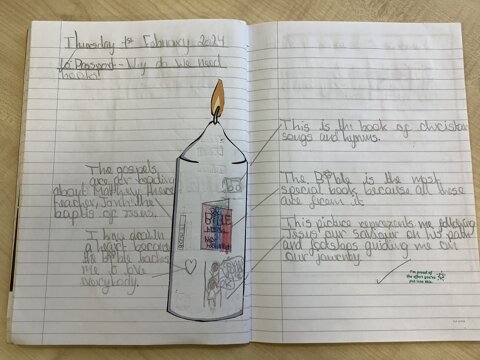 Thursday 1st February 2024
books?
The gospels
are for reading
about Matthew,
teacher, and the
baptis of Jesus.
I have drawn
a heart because
the Bible teaches
me to love
everybody.
BIBLE
This is the book of christian
songs and hymns.
The Bible is the most
special book because all these
are from it
This picture represents me following
Jesus our saviour on his path
and footsteps guiding me on
our journey
I'm proud of
the effort you've
put into this.